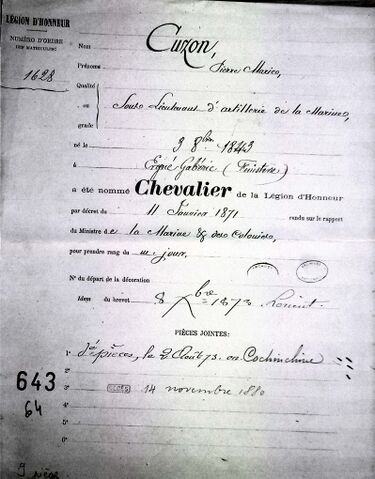 LÉGION D'HONNEUR
NUMÉRO D'ORDRE
DES MATRICULES
1628
Nom Cuzon,
Prénoms Pierre Marie,
Qualité
ou Sous Lieutenant d'artillerie de la Marine,
grade
né le 9 8bre 1843
à Ergué Gabéric (Finistère)
a été nommé Chevalier de la Légion d'Honneur
par décret du 11 Janvier 1871 rendu sur le rapport
du Ministre de la Marine & des Colonies,
pour prendre rang du m. jour.
N° du départ de la décoration
Idem du brevet 8 Xbre 1873 Lorient.
PIÈCES JOINTES:
1° pièces, le 2 Août 73. au Cochinchine
2°
3° 14 novembre 1880
4°
5°
6°
643
64
9